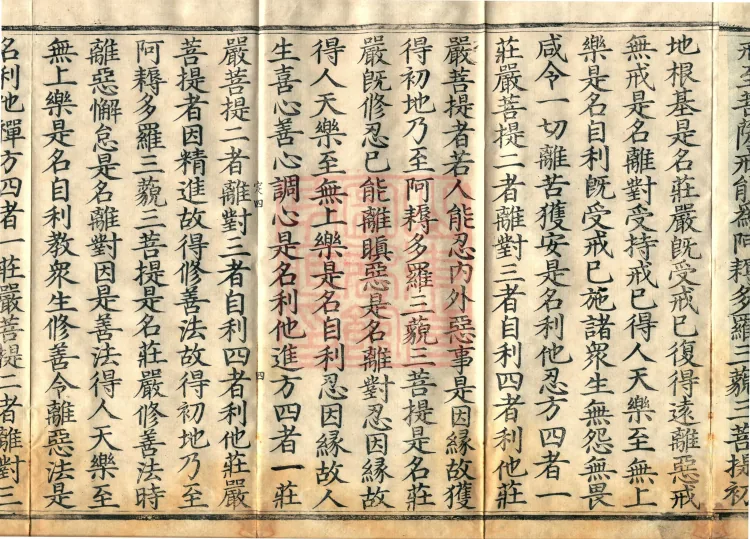 戒至菩薩戒能為阿耨多羅三藐三菩提初
地根基是名莊嚴既受戒已復得遠離惡戒
無戒是名離對受持戒已得人天樂至無上
樂是名自利既受戒已施諸衆生無怨無畏
咸令一切離苦獲安是名利他忍方四者一
莊嚴菩提二者離對三者自利四者利他莊
嚴菩提者若人能忍內外惡事是因緣故獲
得初地乃至阿耨多羅三藐三菩提是名莊
嚴既修忍已能離瞋惡是名離對忍因緣故
得人天樂至無上樂是名自利忍因緣故人
生喜心善心調心是名利他進方四者一莊
嚴菩提二者離對三者自利四者利他莊嚴
四
菩提者因精進故得修善法故得初地乃至
阿耨多羅三藐三菩提是名莊嚴修善法時
離惡懈怠是名離對因是善法得人天樂至
無上樂是名自利教衆生修善令離惡法是
名利他禪方四者一莊嚴菩提二者離對三